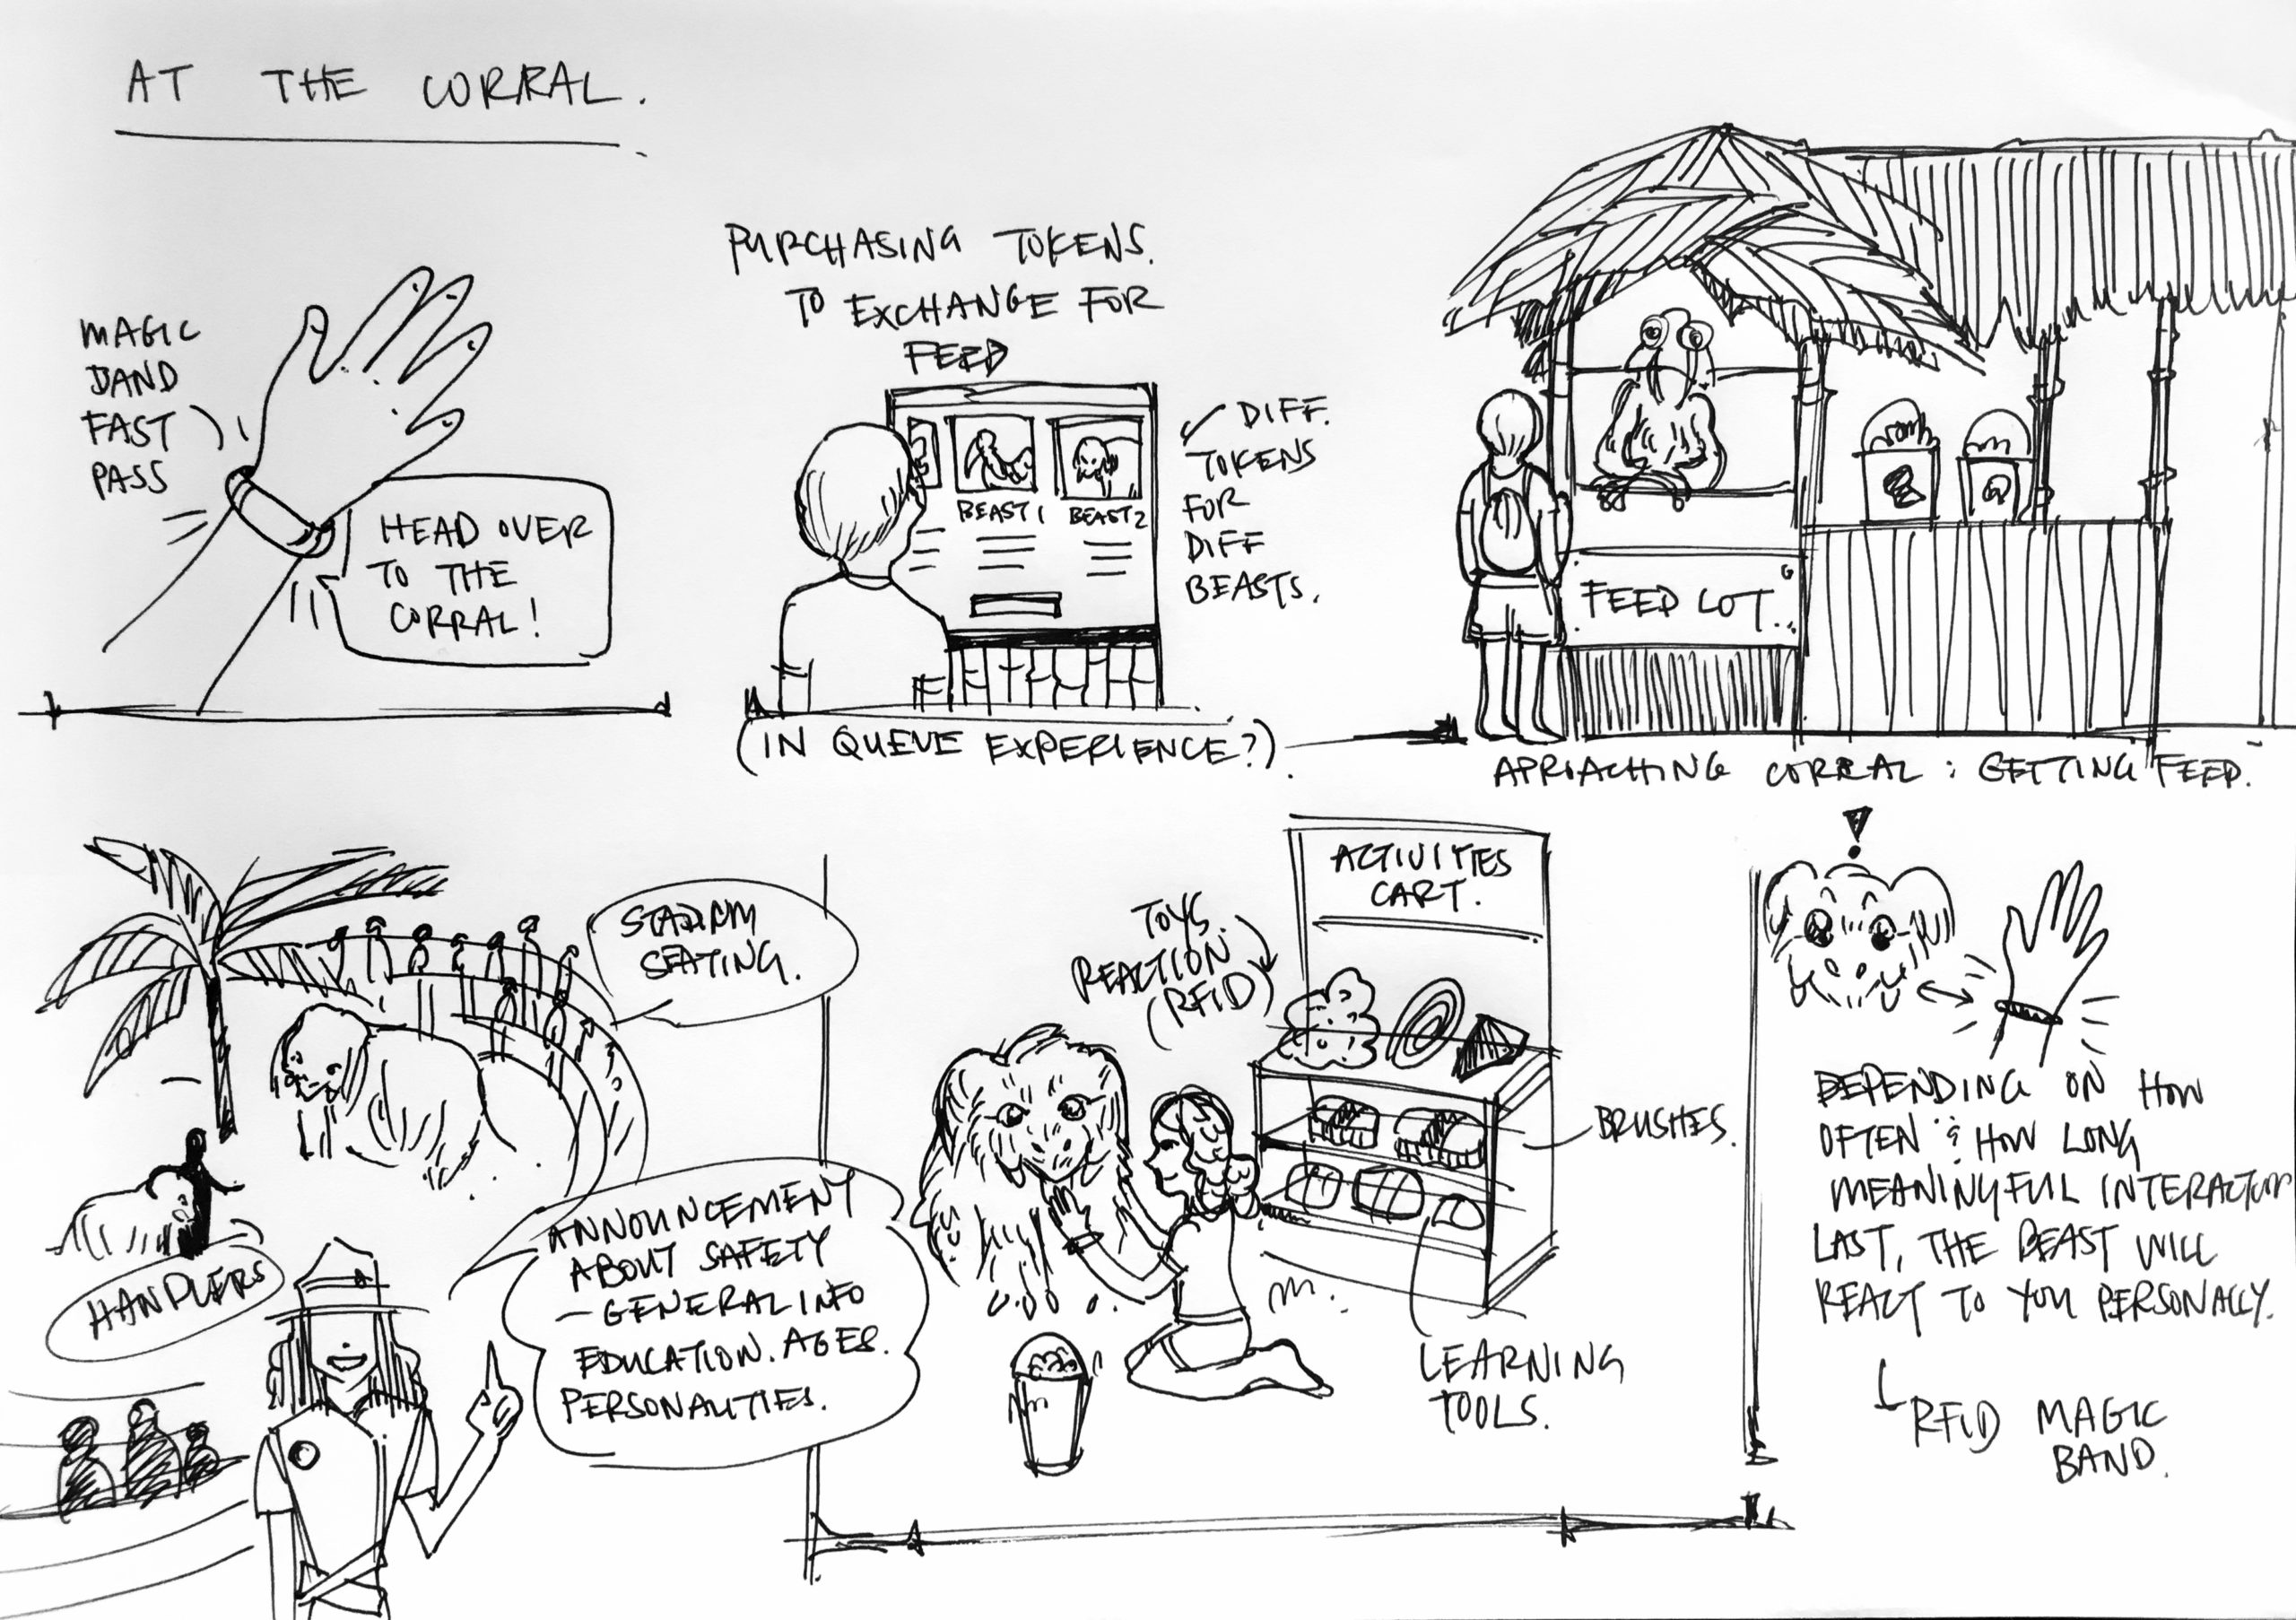 AT THE CORRAL.
MAGIC
BAND
FAST
PASS
HEAD OVER
TO THE
CORRAL!
PURCHASING TOKENS.
TO EXCHANGE FOR
FEED
BEAST 1 BEAST 2
DIFF.
TOKENS
FOR
DIFF
BEASTS.
(IN QUEUE EXPERIENCE?).
FEED LOT.
APROACHING CORRAL : GETTING FEED.
STADIUM
SEATING.
HANDLERS
ANNOUNCEMENT
ABOUT SAFETY
- GENERAL INFO
EDUCATION. AGES.
PERSONALITIES.
ACTIVITIES
CART.
TOYS.
REACTION
(RFID)
BRUSHES.
LEARNING
TOOLS.
!
DEPENDING ON HOW
OFTEN & HOW LONG
MEANINGFUL INTERACTION
LAST, THE BEAST WILL
REACT TO YOU PERSONALLY.
RFID MAGIC
BAND.